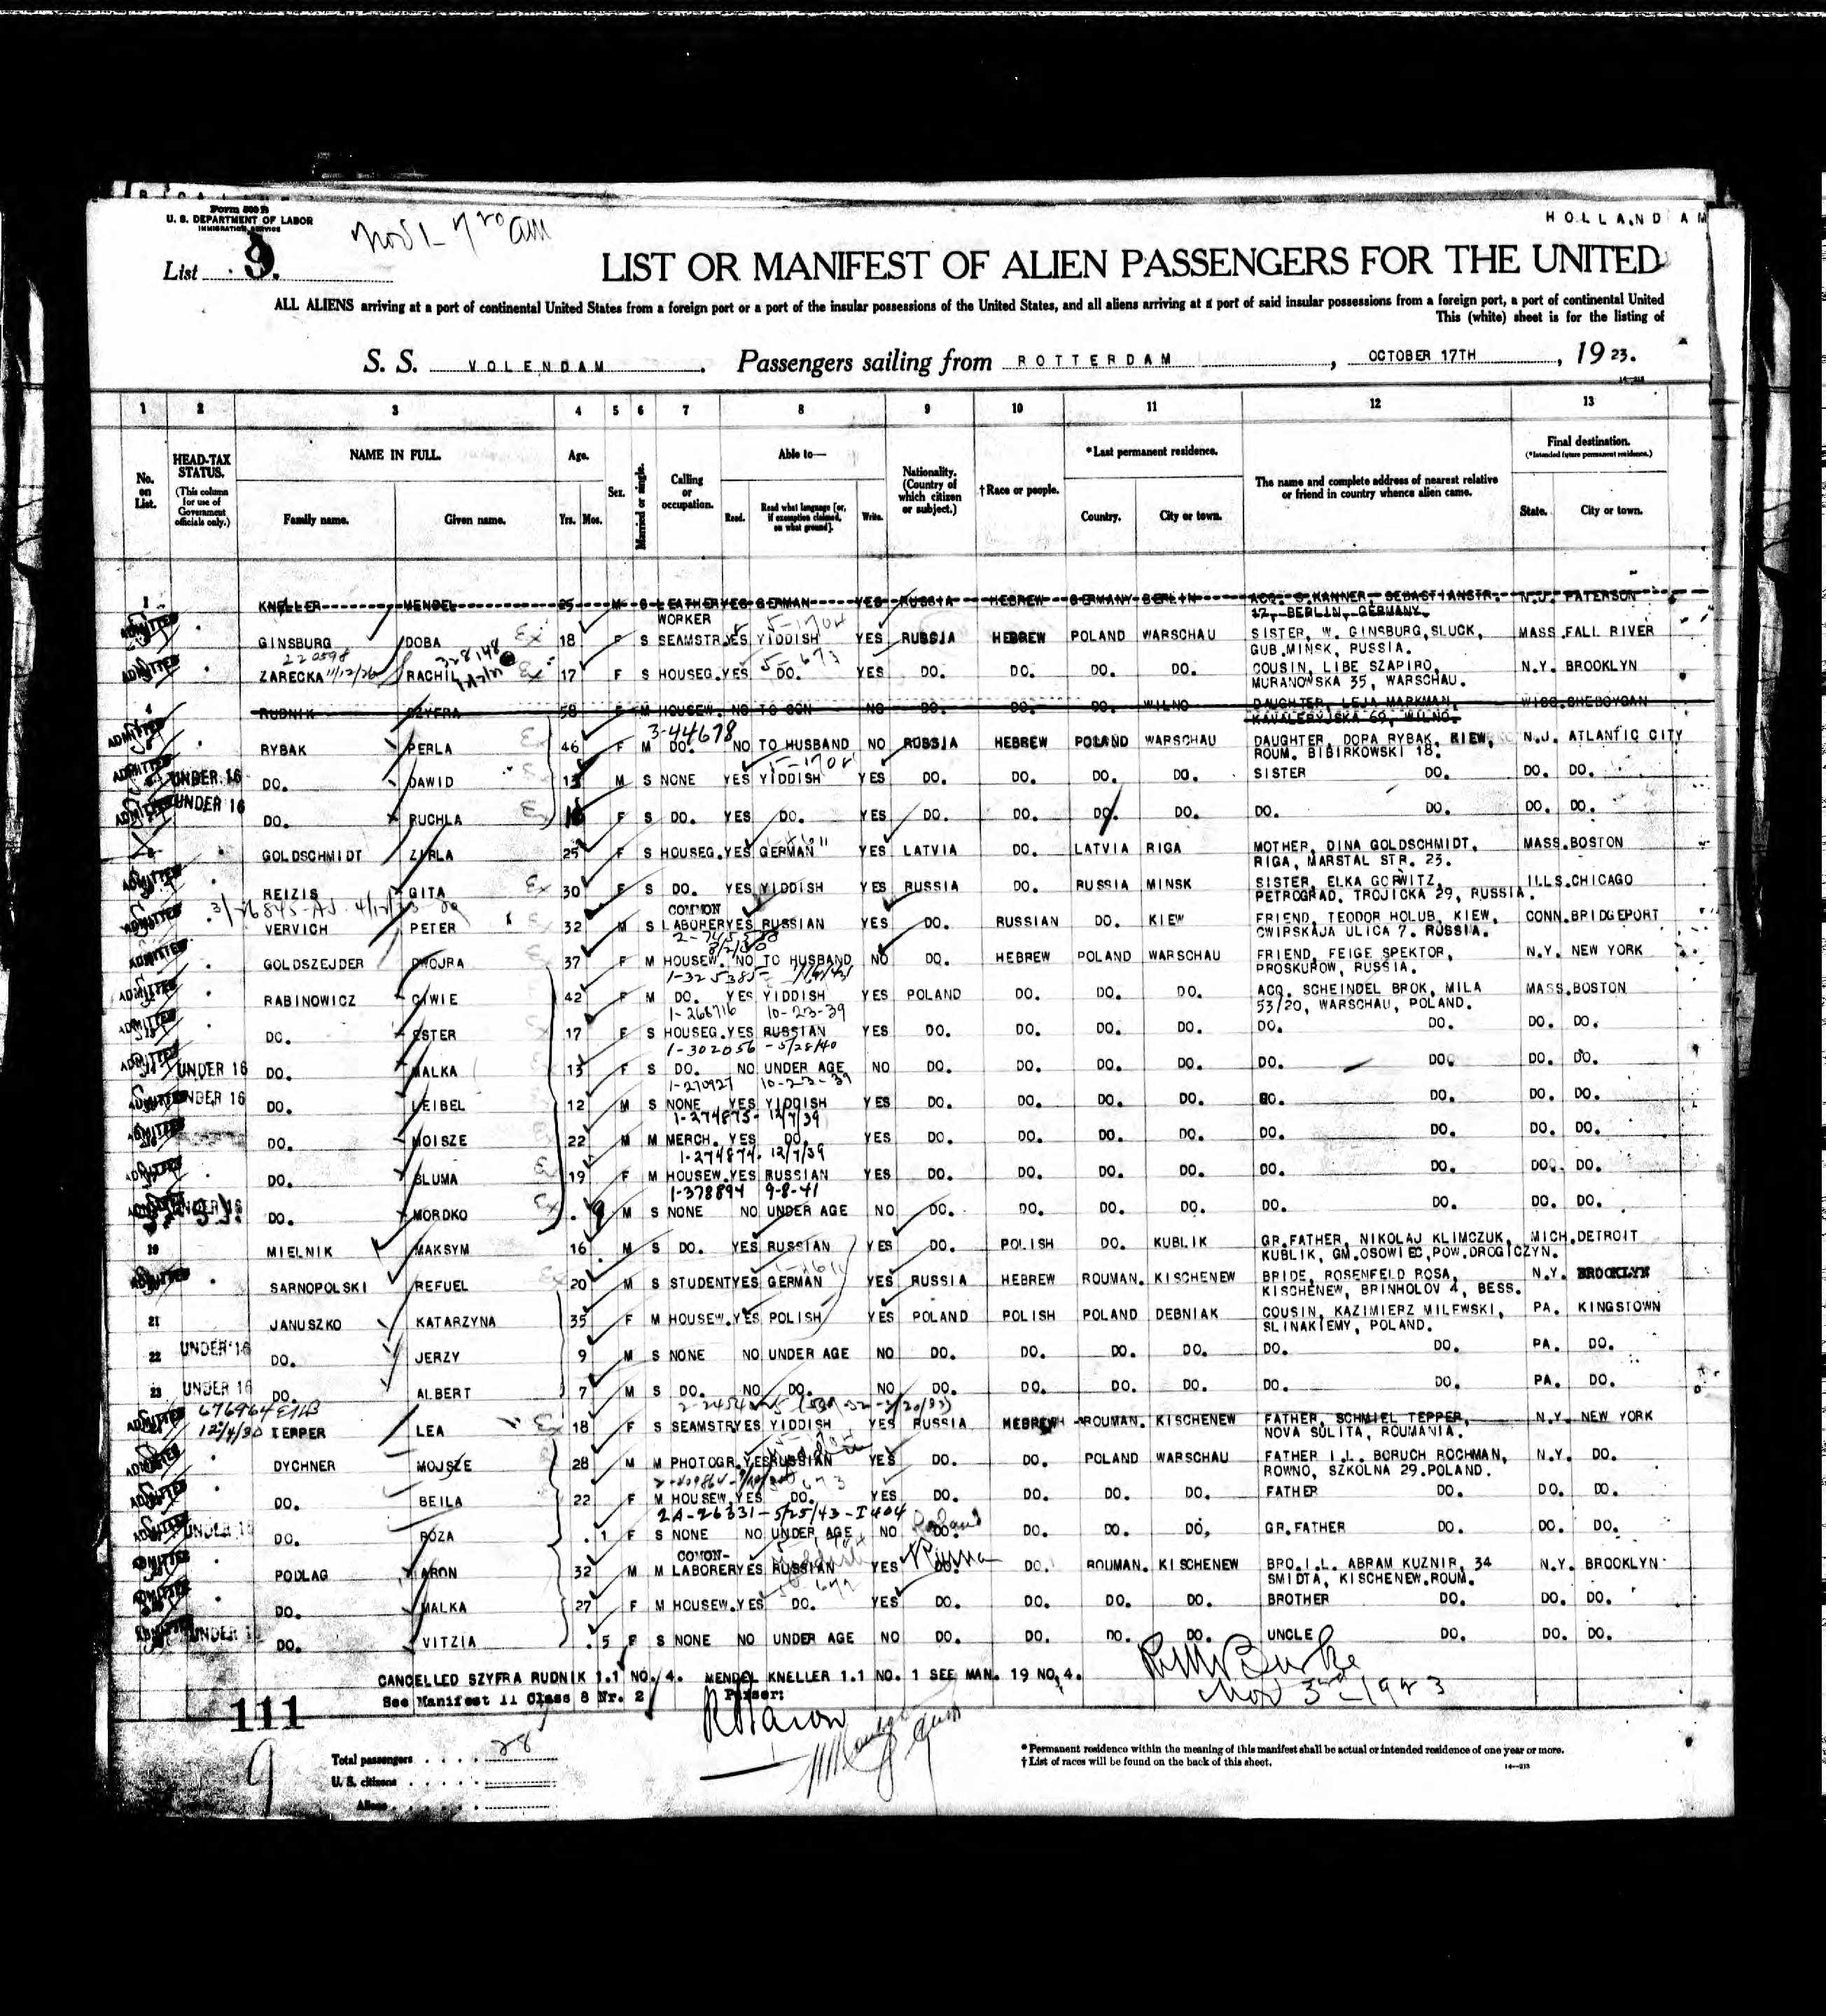 HOLLAND AM
Form 500 B
U. S. DEPARTMENT OF LABOR
IMMIGRATION SERVICE
Nov 1 - 7 20 am
List 9.
LIST OR MANIFEST OF ALIEN PASSENGERS FOR THE UNITED
ALL ALIENS arriving at a port of continental United States from a foreign port or a port of the insular possessions of the United States, and all aliens arriving at a port of said insular possessions from a foreign port, a port of continental United
This (white) sheet is for the listing of
S. S. VOLENDAM. Passengers sailing from ROTTERDAM, OCTOBER 17TH, 1923.
1 2 3 4 5 6 7 8 9 10 11 12 13
No. on List. HEAD-TAX STATUS. (This column for use of Government officials only.) NAME IN FULL. Family name. Given name. Age. Yrs. Mos. Sex. Married or single. Calling or occupation. Able to— Read. Read what language [or, if exemption claimed, on what ground]. Write. Nationality. (Country of which citizen or subject.) †Race or people. *Last permanent residence. Country. City or town. The name and complete address of nearest relative or friend in country whence alien came. Final destination. (*Intended future permanent residence.) State. City or town.
1 KNELLER MENDEL 25 M S LEATHER YES GERMAN YES RUSSIA HEBREW GERMANY BERLIN ACQ. S.KANNER, SEBASTIANSTR. N.J. PATERSON
WORKER 17, BERLIN, GERMANY.
ADMITTED GINSBURG DOBA 18 F S SEAMSTR. YES YIDDISH YES RUSSIA HEBREW POLAND WARSCHAU SISTER, W. GINSBURG, SLUCK, MASS. FALL RIVER
GUB.MINSK, RUSSIA.
ADMITTED ZARECKA RACHIL 17 F S HOUSEG. YES DO. YES DO. DO. DO. DO. COUSIN, LIBE SZAPIRO, N.Y. BROOKLYN
MURANOWSKA 35, WARSCHAU.
4 RUDNIK SZYFRA 58 F M HOUSEW. NO TO SON NO DO. DO. DO. WILNO DAUGHTER, LEJA MARKMAN, WISC. SHEBOYGAN
KAVALERYJSKA 69, WILNO.
3-44678
ADMITTED RYBAK PERLA 46 F M DO. NO TO HUSBAND NO RUSSIA HEBREW POLAND WARSCHAU DAUGHTER, DOPA RYBAK, KIEW, N.J. ATLANTIC CITY
ROUM. BIBIRKOWSKI 18.
ADMITTED UNDER 16 DO. DAWID M S NONE YES YIDDISH YES DO. DO. DO. DO. SISTER DO. DO. DO.
ADMITTED UNDER 16 DO. RUCHLA F S DO. YES DO. YES DO. DO. DO. DO. DO. DO. DO. DO.
GOLDSCHMIDT ZIRLA 25 F S HOUSEG. YES GERMAN YES LATVIA DO. LATVIA RIGA MOTHER, DINA GOLDSCHMIDT, MASS. BOSTON
RIGA, MARSTAL STR. 23.
ADMITTED REIZIS GITA 30 F S DO. YES YIDDISH YES RUSSIA DO. RUSSIA MINSK SISTER, ELKA GORWITZ, ILLS. CHICAGO
PETROGRAD, TROJICKA 29, RUSSIA.
COMMON
ADMITTED VERVICH PETER 32 M S LABORER YES RUSSIAN YES DO. RUSSIAN DO. KIEW FRIEND, TEODOR HOLUB, KIEW, CONN. BRIDGEPORT
CWIPSKAJA ULICA 7. RUSSIA.
ADMITTED GOLDSZEJDER DWOJRA 37 F M HOUSEW. NO TO HUSBAND NO DO. HEBREW POLAND WARSCHAU FRIEND, FEIGE SPEKTOR, N.Y. NEW YORK
PROSKUROW, RUSSIA.
1-325385
ADMITTED RABINOWICZ CIWIE 42 F M DO. YES YIDDISH YES POLAND DO. DO. DO. ACQ. SCHEINDEL BROK, MILA MASS. BOSTON
53/20, WARSCHAU, POLAND.
1-268716 10-23-39
ADMITTED DO. ESTER 17 F S HOUSEG. YES RUSSIAN YES DO. DO. DO. DO. DO. DO. DO. DO.
1-302056 - 5/28/40
ADMITTED UNDER 16 DO. MALKA 13 F S DO. NO UNDER AGE NO DO. DO. DO. DO. DO. DO. DO. DO.
1-270927 10-23-39
ADMITTED UNDER 16 DO. LEIBEL 12 M S NONE YES YIDDISH YES DO. DO. DO. DO. DO. DO. DO. DO.
1-274875- 12/7/39
ADMITTED DO. MOISZE 22 M M MERCH. YES DO. YES DO. DO. DO. DO. DO. DO. DO. DO.
1-274874- 12/7/39
ADMITTED DO. BLUMA 19 F M HOUSEW. YES RUSSIAN YES DO. DO. DO. DO. DO. DO. DO. DO.
1-378894 9-8-41
ADMITTED UNDER 16 DO. MORDKO 9 M S NONE NO UNDER AGE NO DO. DO. DO. DO. DO. DO. DO. DO.
19 MIELNIK MAKSYM 16 M S DO. YES RUSSIAN YES DO. POLISH DO. KUBLIK GR.FATHER, NIKOLAJ KLIMCZUK, MICH. DETROIT
KUBLIK, GM.OSOWIEC, POW.DROGICZYN.
ADMITTED SARNOPOLSKI REFUEL 20 M S STUDENT YES GERMAN YES RUSSIA HEBREW ROUMAN. KISCHENEW BRIDE, ROSENFELD ROSA, N.Y. BROOKLYN
KISCHENEW, BRINHOLOV 4, BESS.
21 JANUSZKO KATARZYNA 35 F M HOUSEW. YES POLISH YES POLAND POLISH POLAND DEBNIAK COUSIN, KAZIMIERZ MILEWSKI, PA. KINGSTOWN
SLINAKIEMY, POLAND.
22 UNDER 16 DO. JERZY 9 M S NONE NO UNDER AGE NO DO. DO. DO. DO. DO. DO. PA. DO.
23 UNDER 16 DO. ALBERT 7 M S DO. NO DO. NO DO. DO. DO. DO. DO. DO. PA. DO.
ADMITTED TEPPER LEA 18 F S SEAMSTR YES YIDDISH YES RUSSIA HEBREW ROUMAN. KISCHENEW FATHER, SCHMIEL TEPPER, N.Y. NEW YORK
NOVA SULITA, ROUMANIA.
ADMITTED DYCHNER MOJSZE 28 M M PHOTOGR. YES RUSSIAN YES DO. DO. POLAND WARSCHAU FATHER I.L. BORUCH ROCHMAN, N.Y. DO.
ROWNO, SZKOLNA 29.POLAND.
ADMITTED DO. BEILA 22 F M HOUSEW. YES DO. YES DO. DO. DO. DO. FATHER DO. DO. DO.
2A-26331-5/25/43-I404
UNDER 16 DO. ROZA 1 F S NONE NO UNDER AGE NO DO. Poland DO. DO. DO, GR.FATHER DO. DO. DO.
COMON-
ADMITTED PODLAG ARON 32 M M LABORER YES RUSSIAN YES DO. Russia DO. ROUMAN. KISCHENEW BRO.I.L. ABRAM KUZNIR, 34 N.Y. BROOKLYN
SMIDTA, KISCHENEW.ROUM.
ADMITTED DO. MALKA 27 F M HOUSEW. YES DO. YES DO. DO. DO. DO. BROTHER DO. DO. DO.
ADMITTED UNDER DO. VITZIA 5 F S NONE NO UNDER AGE NO DO. DO. DO. DO. UNCLE DO. DO. DO.
CANCELLED SZYFRA RUDNIK 1.1 NO. 4. MENDEL KNELLER 1.1 NO. 1 SEE MAN. 19 NO. 4.
See Manifest 11 Class 8 Nr. 2
Purser:
Burke
Nov 3rd-1923
111
9
Total passengers 28
U. S. citizens
Aliens
*Permanent residence within the meaning of this manifest shall be actual or intended residence of one year or more.
†List of races will be found on the back of this sheet.
14—213